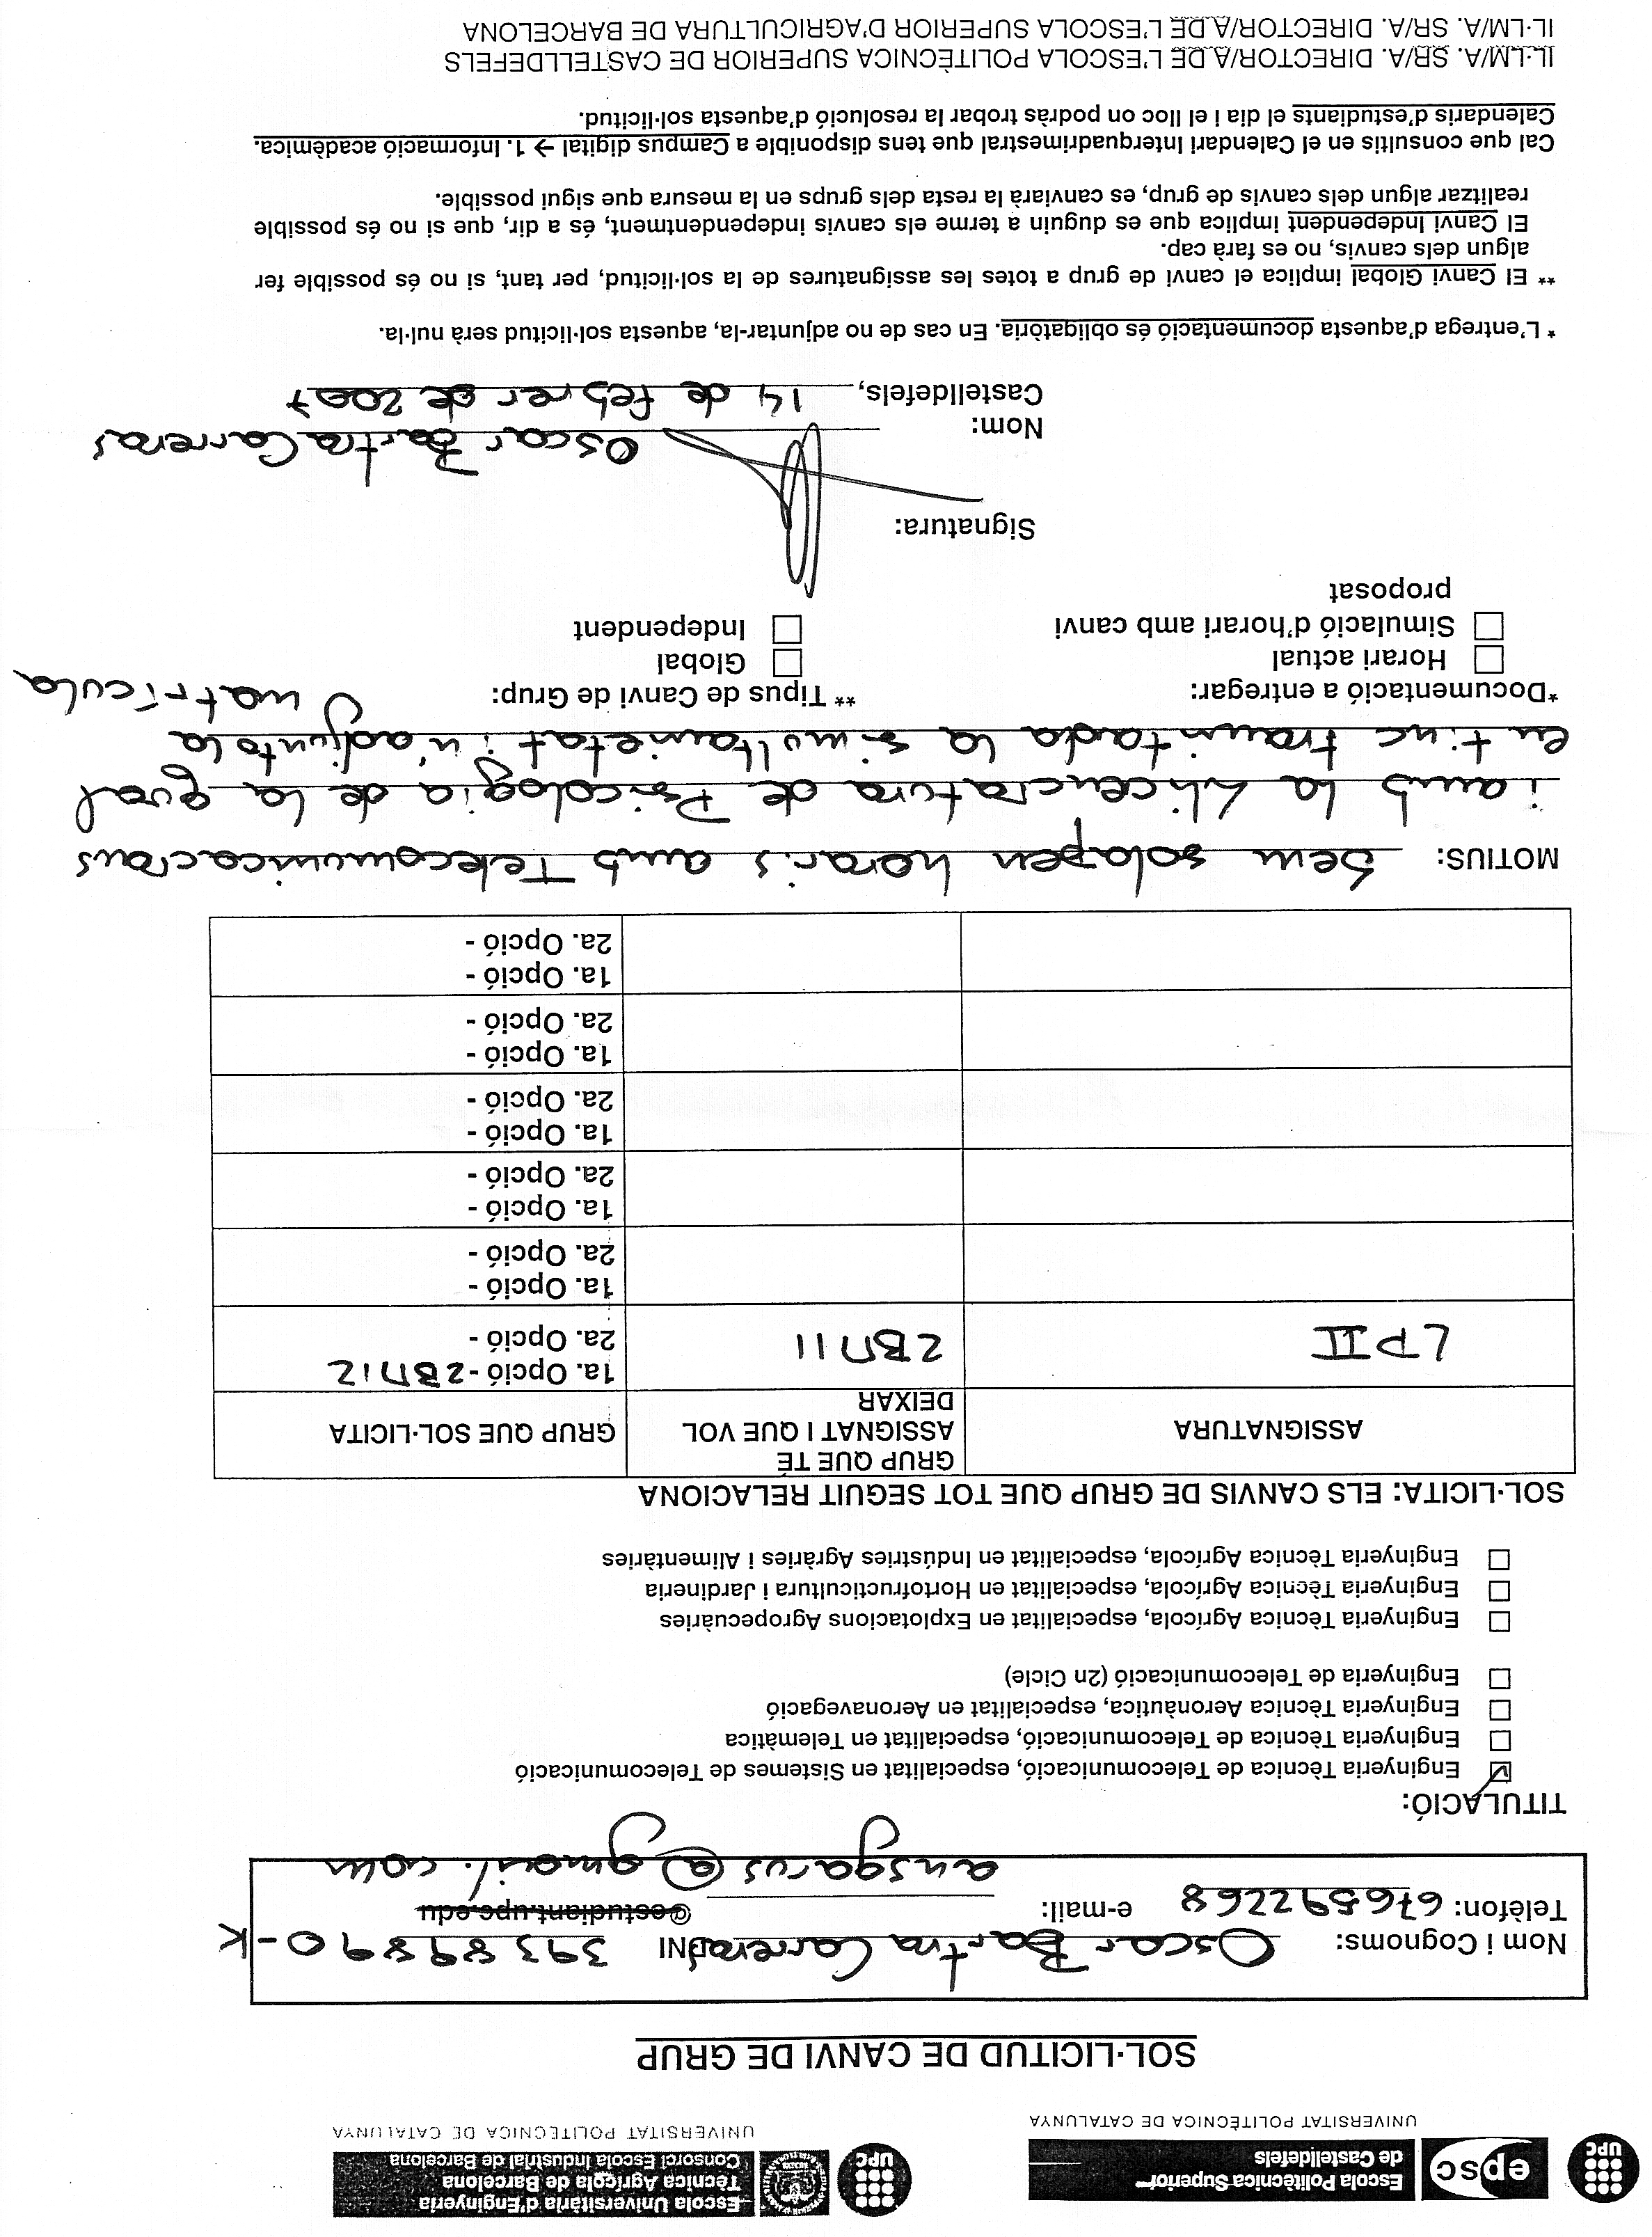 UPC
epsc
Escola Politècnica Superior
de Castelldefels
UNIVERSITAT POLITÈCNICA DE CATALUNYA
UPC
Escola Universitària d'Enginyeria
Tècnica Agrícola de Barcelona
Consorci Escola Industrial de Barcelona
UNIVERSITAT POLITÈCNICA DE CATALUNYA
SOL·LICITUD DE CANVI DE GRUP
Nom i Cognoms: Oscar Bartra Carreras DNI 39389890-K
Telèfon: 676592268 e-mail: @estudiant.upc.edu
ausgarus@gmail.com
TITULACIÓ:
Enginyeria Tècnica de Telecomunicació, especialitat en Sistemes de Telecomunicació
Enginyeria Tècnica de Telecomunicació, especialitat en Telemàtica
Enginyeria Tècnica Aeronàutica, especialitat en Aeronavegació
Enginyeria de Telecomunicació (2n Cicle)
Enginyeria Tècnica Agrícola, especialitat en Explotacions Agropecuàries
Enginyeria Tècnica Agrícola, especialitat en Hortofructicultura i Jardineria
Enginyeria Tècnica Agrícola, especialitat en Indústries Agràries i Alimentàries
SOL·LICITA: ELS CANVIS DE GRUP QUE TOT SEGUIT RELACIONA
ASSIGNATURA
GRUP QUE TÉ
ASSIGNAT I QUE VOL
DEIXAR
GRUP QUE SOL·LICITA
LPII
2BM11
1a. Opció - 2BM12
2a. Opció -
1a. Opció -
2a. Opció -
1a. Opció -
2a. Opció -
1a. Opció -
2a. Opció -
1a. Opció -
2a. Opció -
1a. Opció -
2a. Opció -
MOTIUS: Sem solapen horaris amb Telecomunicacions
i amb la Llicenciatura de Psicologia de la qual
en tinc tramitada la simultaneïtat i n'adjunto la
matrícula
*Documentació a entregar:
Horari actual
Simulació d'horari amb canvi
proposat
** Tipus de Canvi de Grup:
Global
Independent
Signatura:
Nom: Oscar Bartra Carreras
Castelldefels, 14 de febrer de 2007
* L'entrega d'aquesta documentació és obligatòria. En cas de no adjuntar-la, aquesta sol·licitud serà nul·la.
** El Canvi Global implica el canvi de grup a totes les assignatures de la sol·licitud, per tant, si no és possible fer
algun dels canvis, no es farà cap.
El Canvi Independent implica que es duguin a terme els canvis independentment, és a dir, que si no és possible
realitzar algun dels canvis de grup, es canviarà la resta dels grups en la mesura que sigui possible.
Cal que consultis en el Calendari Interquadrimestral que tens disponible a Campus digital → 1. Informació acadèmica.
Calendaris d'estudiants el dia i el lloc on podràs trobar la resolució d'aquesta sol·licitud.
IL·LM/A. SR/A. DIRECTOR/A DE L'ESCOLA POLITÈCNICA SUPERIOR DE CASTELLDEFELS
IL·LM/A. SR/A. DIRECTOR/A DE L'ESCOLA SUPERIOR D'AGRICULTURA DE BARCELONA